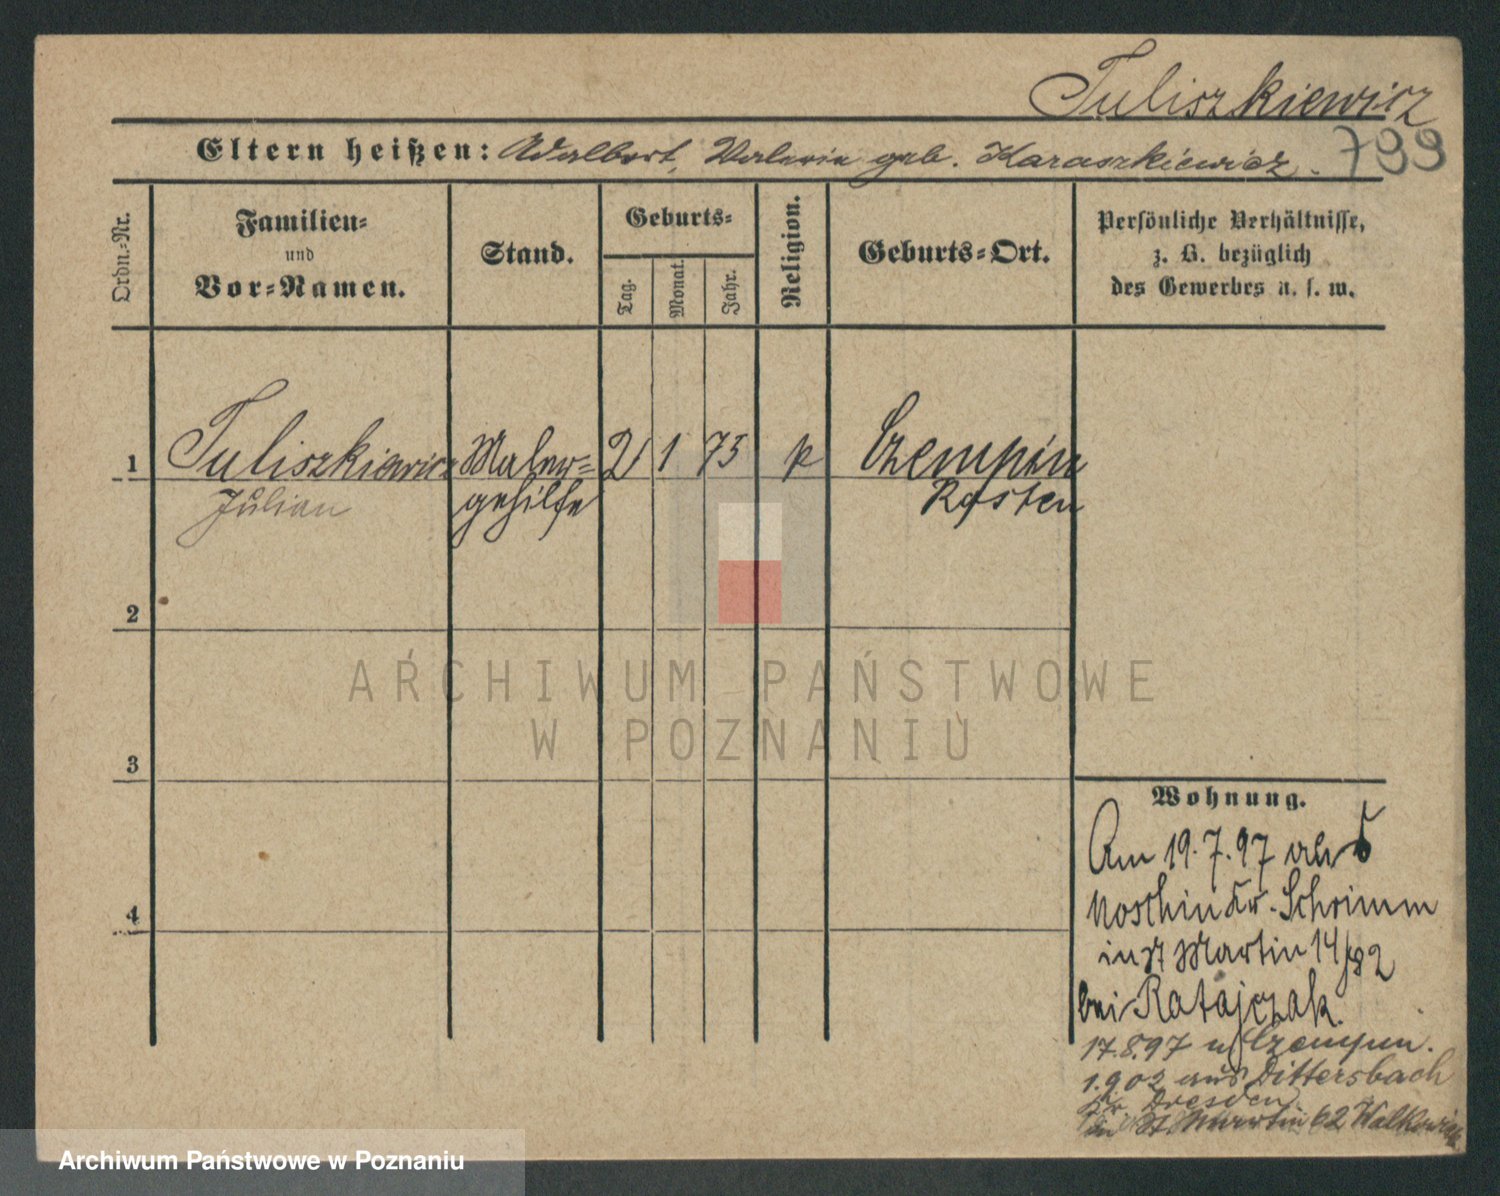 Tuliszkiewicz
Eltern heißen: Adalbert, Valeria geb. Haraszkiewicz.
799
Ordn.-Nr.
Familien-
und
Vor-Namen.
Stand.
Geburts-
Tag.
Monat.
Jahr.
Religion.
Geburts-Ort.
Persönliche Verhältnisse,
z. B. bezüglich
des Gewerbes u. s. w.
1 Tuliszkiewicz Maler- 2 1 75 k Czempin
Julian gehilfe Kosten
2
3
4
Wohnung.
Am 19.7.97
Moschin Kr. Schrimm
in St Martin 14/
bei Ratajczak.
17.8.97 n Czempin.
1.9 02 aus Dittersbach
Kr. Dresden
in St Martin 62 Walkowiak
ARCHIWUM PAŃSTWOWE
W POZNANIU
Archiwum Państwowe w Poznaniu